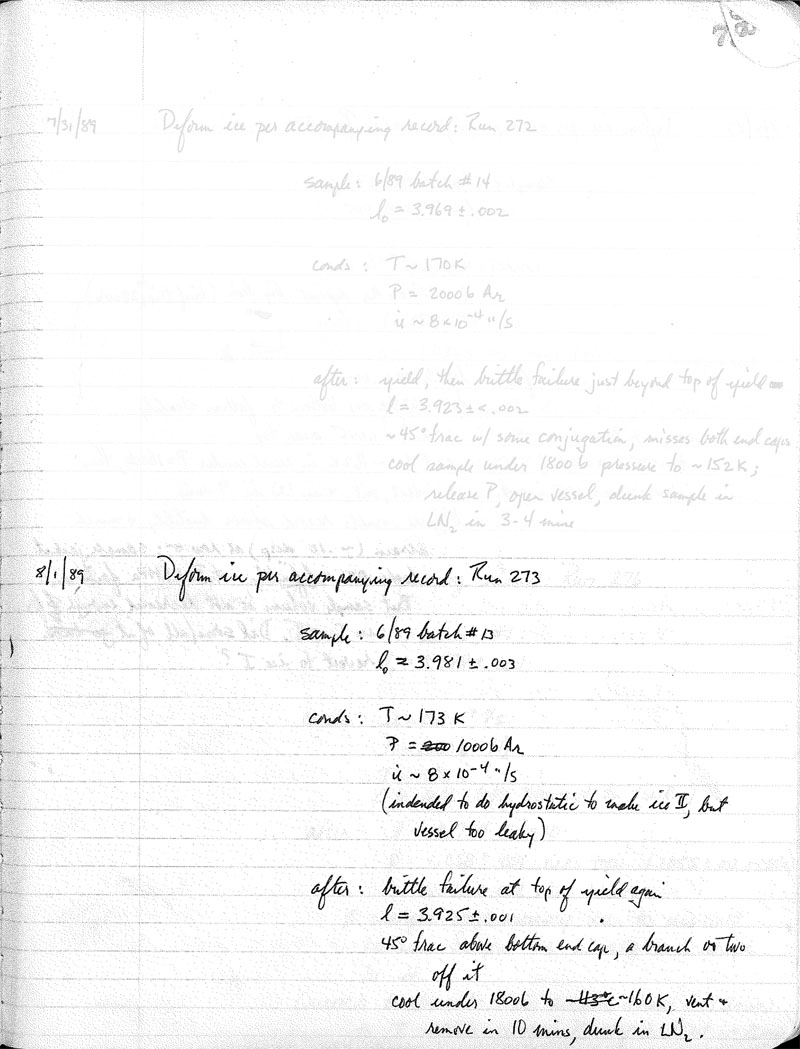 78
7/31/89 Deform ice per accompanying record: Run 272
sample: 6/89 batch #14
l₀ = 3.969 ± .002
conds: T ~ 170K
P = 2000 b Ar
u̇ ~ 8×10⁻⁴ "/s
after: yield, then brittle failure just beyond top of yield
l = 3.923 ± <.002
~45° frac w/ some conjugation, misses both end caps
cool sample under 1800 b pressure to ~152K;
release P, open vessel, dunk sample in
LN₂ in 3-4 mins
8/1/89 Deform ice per accompanying record: Run 273
sample: 6/89 batch #13
l₀ = 3.981 ± .003
conds: T ~ 173 K
P = 1000 b Ar
u̇ ~ 8 × 10⁻⁴ "/s
(indended to do hydrostatic to make ice II, but
vessel too leaky)
after: brittle failure at top of yield again
l = 3.925 ± .001
45° frac above bottom end cap, a branch or two
off it
cool under 1800 b to ~160K, vent +
remove in 10 mins, dunk in LN₂.